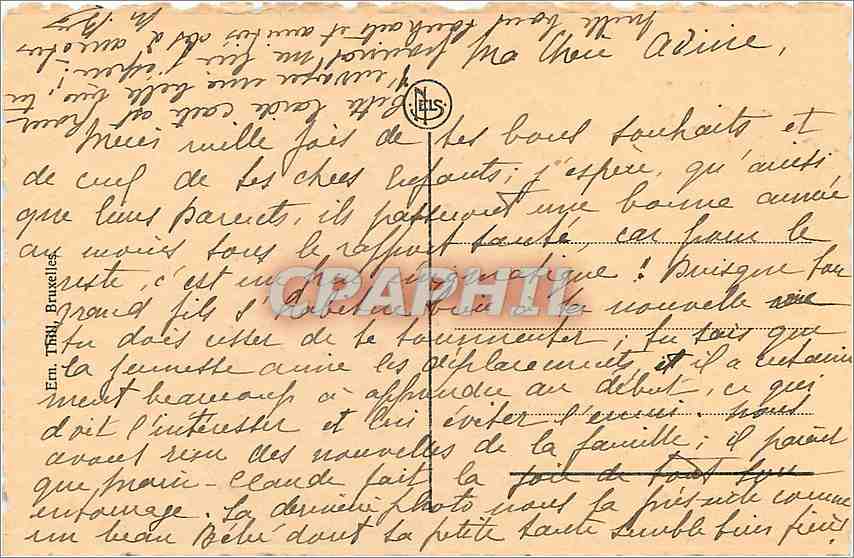 Ma Chère Adine,
Merci mille fois de tes bons souhaits et
de ceux de tes chers Enfants; j'espère, qu'ainsi
que leurs Parents, ils passeront une bonne année
au moins sous le rapport santé, car pour le
reste, c'est un peu énigmatique! Puisque ton
grand fils s'habitue bien à sa nouvelle vie
tu dois cesser de te tourmenter; tu sais que
la jeunesse aime les déplacements, et il a certaine
ment beaucoup à apprendre au début, ce qui
doit l'intéresser et lui éviter l'ennui. Nous
avons reçu des nouvelles de la famille; il paraît
que Marie-Claude fait la joie de tout son
entourage. La dernière photo nous la présente comme
un beau Bébé dont la petite tante semble bien fière!
Cette carte est pour
t'envoyer une belle vue, tu
l'espère!
mille bons souhaits et amitiés des 2
NELS
Ern. Thill, Bruxelles.
CPAPHIL